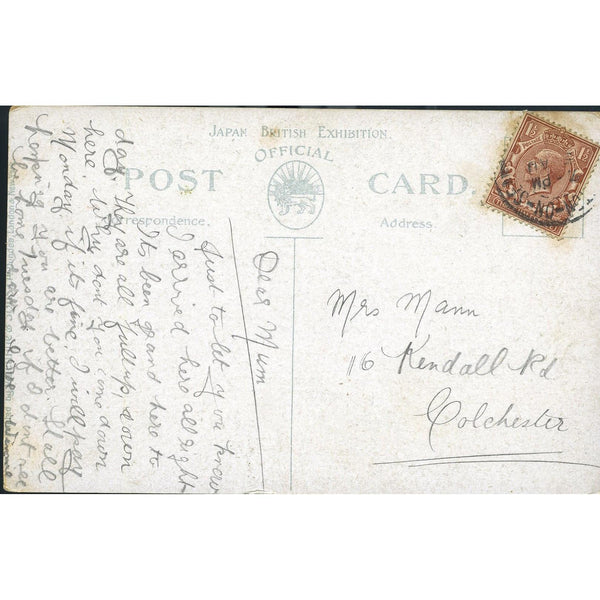 JAPAN BRITISH EXHIBITION.
OFFICIAL
POST CARD.
Correspondence.
Address.
1½ 1½
PM
-ON-
Mrs Mann
116 Kendall Rd
Colchester
Dear Mum
Just to let you know
I arrived here all right
Its been grand here to
day. They are all full up down
here. Why dont you come down
Monday if its fine, I will pay
hoping you are better. Shall
be home Tuesday if I dont see